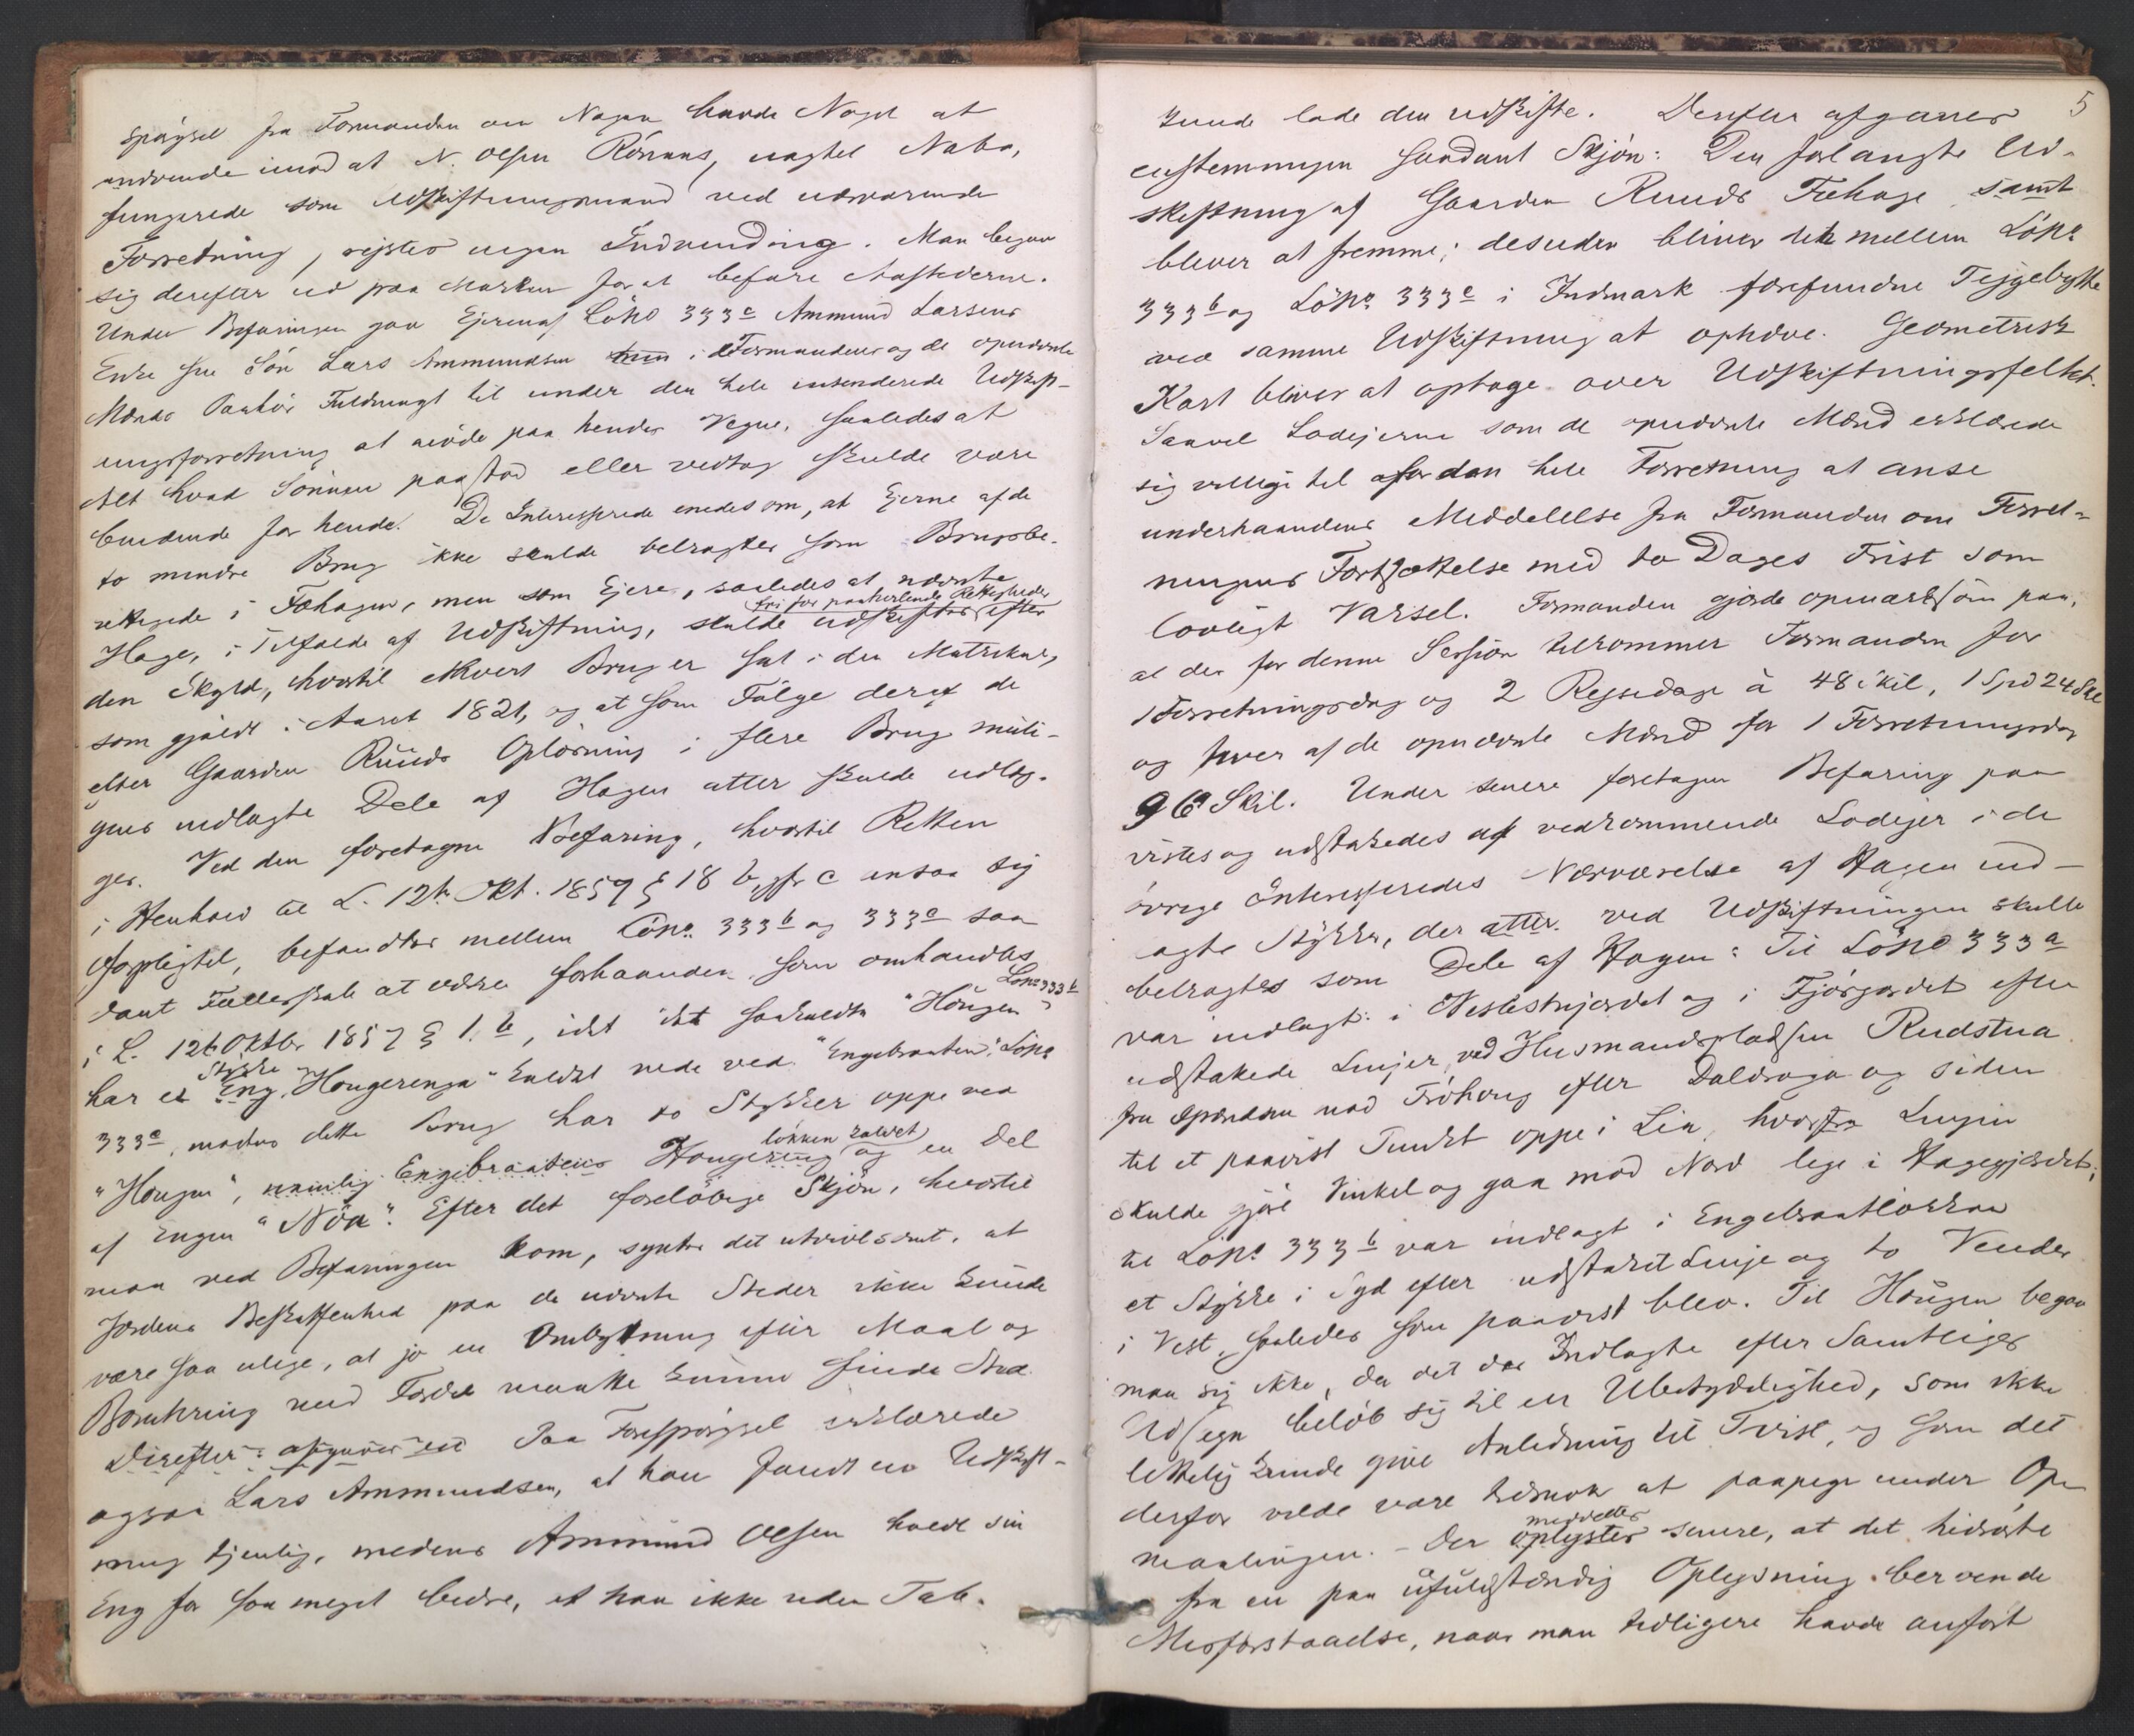 spørgsel fra Formanden om Nogen havde Noget at
indvende imod at N. Olsen Rønnæs, nagtet Nabo,
fungerede som Udskiftningsmand ved nærværende
Forretning, rejstes ingen Indvending. Man begav
sig derefter ud paa Marken for at befare Aastederne.
Under Befaringen gav Ejeren af Løbno 333c Ammund Larsens
Enke sin Søn Lars Ammundsen i Formandens og de opnævnte
Mænds Paahør Fuldmagt til under den hele Udskift-
ningsforretning at møde paa hendes Vegne, saaledes at
Alt hvad Sønnen paastod eller vedtog skulde være
bindende for hende. De Interesserede enedes om, at Ejerne af de
to mindre Brug ikke skulde betragtes som Brugsbe-
rettigede i Fæhagen, men som Ejere, saaledes at nævnte
fri for paaheftende Rettigheder
Hage, i Tilfælde af Udskiftning, skulde udskiftes efter
den Skyld, hvortil ethvert Brug er sat i den Matrikul,
som gjaldt i Aaret 1821, og at som Følge deraf de
efter Gaarden Ruuds Opløsning i flere Brug muli-
gens indlagte Dele af Hagen atter skulde udlæg-
ges. Ved den foretagne Befaring, hvortil Retten
i Henhold til L. 12te Okt. 1857 § 18 b, jfr c ansaa sig
forpligtet, befandtes mellem Løbno 333b og 333c saa
dant Fællesskab at være forhaanden som omhandles
i L. 12te Oktbr 1857 § 1. b, idet det saakaldte "Haugen" Løbno 333b
har et Stykke Eng "Haugerenga" kaldet nede ved "Engebraaten". Løbno
333c, medens dette Brug har to Stykker oppe ved
"Haugen", nemlig Engebraatens Haugereng løkken kaldet og en Del
af Engen "Nøa". Efter det foreløbige Skjøn, hvortil
man ved Befaringen kom, syntes det utvivlsomt, at
Jordens Beskaffenhed paa de nævnte Steder ikke kunde
være saa ulige, at jo en Ombytning efter Maal og
Bonitering med Fordel maatte kunne finde Sted.
Derefter afgaves et Paa Forespørgsel erklærede
ogsaa Lars Ammundsen, at han fandt en Udskift-
ning tjenlig, medens Ammund Olsen holdt sin
Eng for saa meget bedre, at han ikke uden Tab
5
kunde lade den udskifte. Derefter afgaves
enstemmigen saadant Skjøn: Den forlangte Ud-
skiftning af Gaarden Ruuds Fæhage samt
bliver at fremme; desuden bliver det mellem Løbno
333b og Løbno 333c i Indmark forefundne Tejgebytte
ved samme Udskiftning at ophæve. Geometrisk
Kart bliver at optage over Udskiftningsfeltet.
Saavel Lodejerne som de opnævnte Mænd erklærede
sig villige til for den hele Forretning at anse
underhaandens Meddelelse fra Formanden om Forret-
ningens Fortsættelse med to Dages Frist som
lovligt Varsel. Formanden gjorde opmærksom paa,
at der for denne Session tilkommer Formanden for
1 Forretningsdag og 2 Rejsedage à 48 Skil, 1 Spd 24 Skil
og hver af de opnævnte Mænd for 1 Forretningsdag
96 Skil. Under senere foretagen Befaring paa
vistes og udstakedes af vedkommende Lodejer i de
øvrige Interesseredes Nærværelse af Hagen ind-
lagte Stykker, der atter ved Udskiftningen skulle
betragtes som Dele af Hagen: Til Løbno 333a
var indlagt i Veslestujordet og i Fjøsjordet efter
udstakede Linjer, ved Husmandspladsen Rudstua
fra mod Frøhoug efter Daldraga og siden
til et paavist Punkt oppe i Lia, hvorfra Linjen
skulde gjøre Vinkel og gaa mod Nord lige i Hagegjerdet;
til Løbno 333b var indlagt i Engebraatløkken
et Stykke i Syd efter udstaket Linje og to Vender
i Vest, saaledes som paavist blev. Til Haugen begav
man sig ikke, da det der Indlagte efter Samtliges
Udsagn beløb sig til en Ubetydelighed, som ikke
lettelig kunde give Anledning til Tvist, og som det
derfor vilde være tidsnok at paapege under Op-
maalingen. - Der meddeltes oplystes senere, at det hidrørte
fra en paa ufuldstændig Oplysning beroende
Misforstaaelse, naar man tidligere havde anført